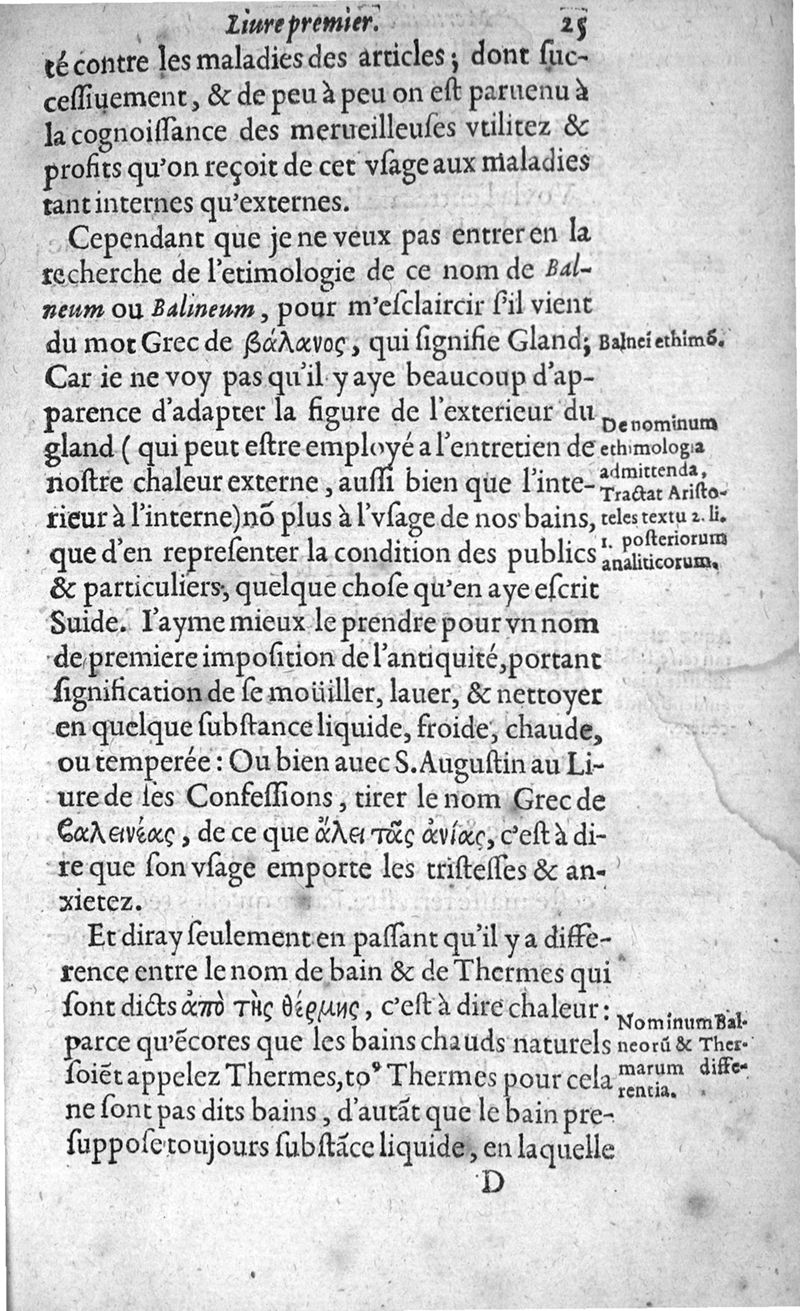 Liure premier. 25
té contre les maladies des articles; dont ſuc-
ceſſiuement, & de peu à peu on eſt paruenu à
la cognoiſſance des merueilleuſes vtilitez &
profits qu'on reçoit de cet vſage aux maladies
tant internes qu'externes.
Cependant que je ne veux pas entrer en la
recherche de l'etimologie de ce nom de Bal-
neum ou Balineum, pour m'eſclaircir ſ'il vient
du mot Grec de βάλανος, qui ſignifie Gland;
Balnei ethimõ.
Car ie ne voy pas qu'il y aye beaucoup d'ap-
parence d'adapter la figure de l'exterieur du
gland ( qui peut eſtre employé a l'entretien de
noſtre chaleur externe, auſſi bien que l'inte-
rieur à l'interne)nõ plus à l'vſage de nos bains,
que d'en repreſenter la condition des publics
De nominum
ethimologia
admittenda,
Tractat Ariſto-
teles textu 2. li.
1. poſteriorum
analiticorum.
& particuliers, quelque choſe qu'en aye eſcrit
Suide. I'ayme mieux le prendre pour vn nom
de premiere impoſition de l'antiquité, portant
ſignification de ſe moüiller, lauer, & nettoyer
en quelque ſubſtance liquide, froide, chaude,
ou temperée : Ou bien auec S. Auguſtin au Li-
ure de ſes Confeſſions, tirer le nom Grec de
ϐαλεινέας, de ce que ἄλει τᾶς ἀνίας, c'eſt à di-
re que ſon vſage emporte les triſteſſes & an-
xietez.
Et diray ſeulement en paſſant qu'il y a diffe-
rence entre le nom de bain & de Thermes qui
ſont dicts ἀπὸ τῆς θέρμης, c'eſt à dire chaleur:
parce qu'ẽcores que les bains chauds naturels
ſoiẽt appelez Thermes, toꝰ Thermes pour cela
Nominum Bal-
neorũ & Ther-
marum diffe-
rentia.
ne ſont pas dits bains, d'autãt que le bain pre-
ſuppoſe toujours ſubſtãce liquide, en laquelle
D